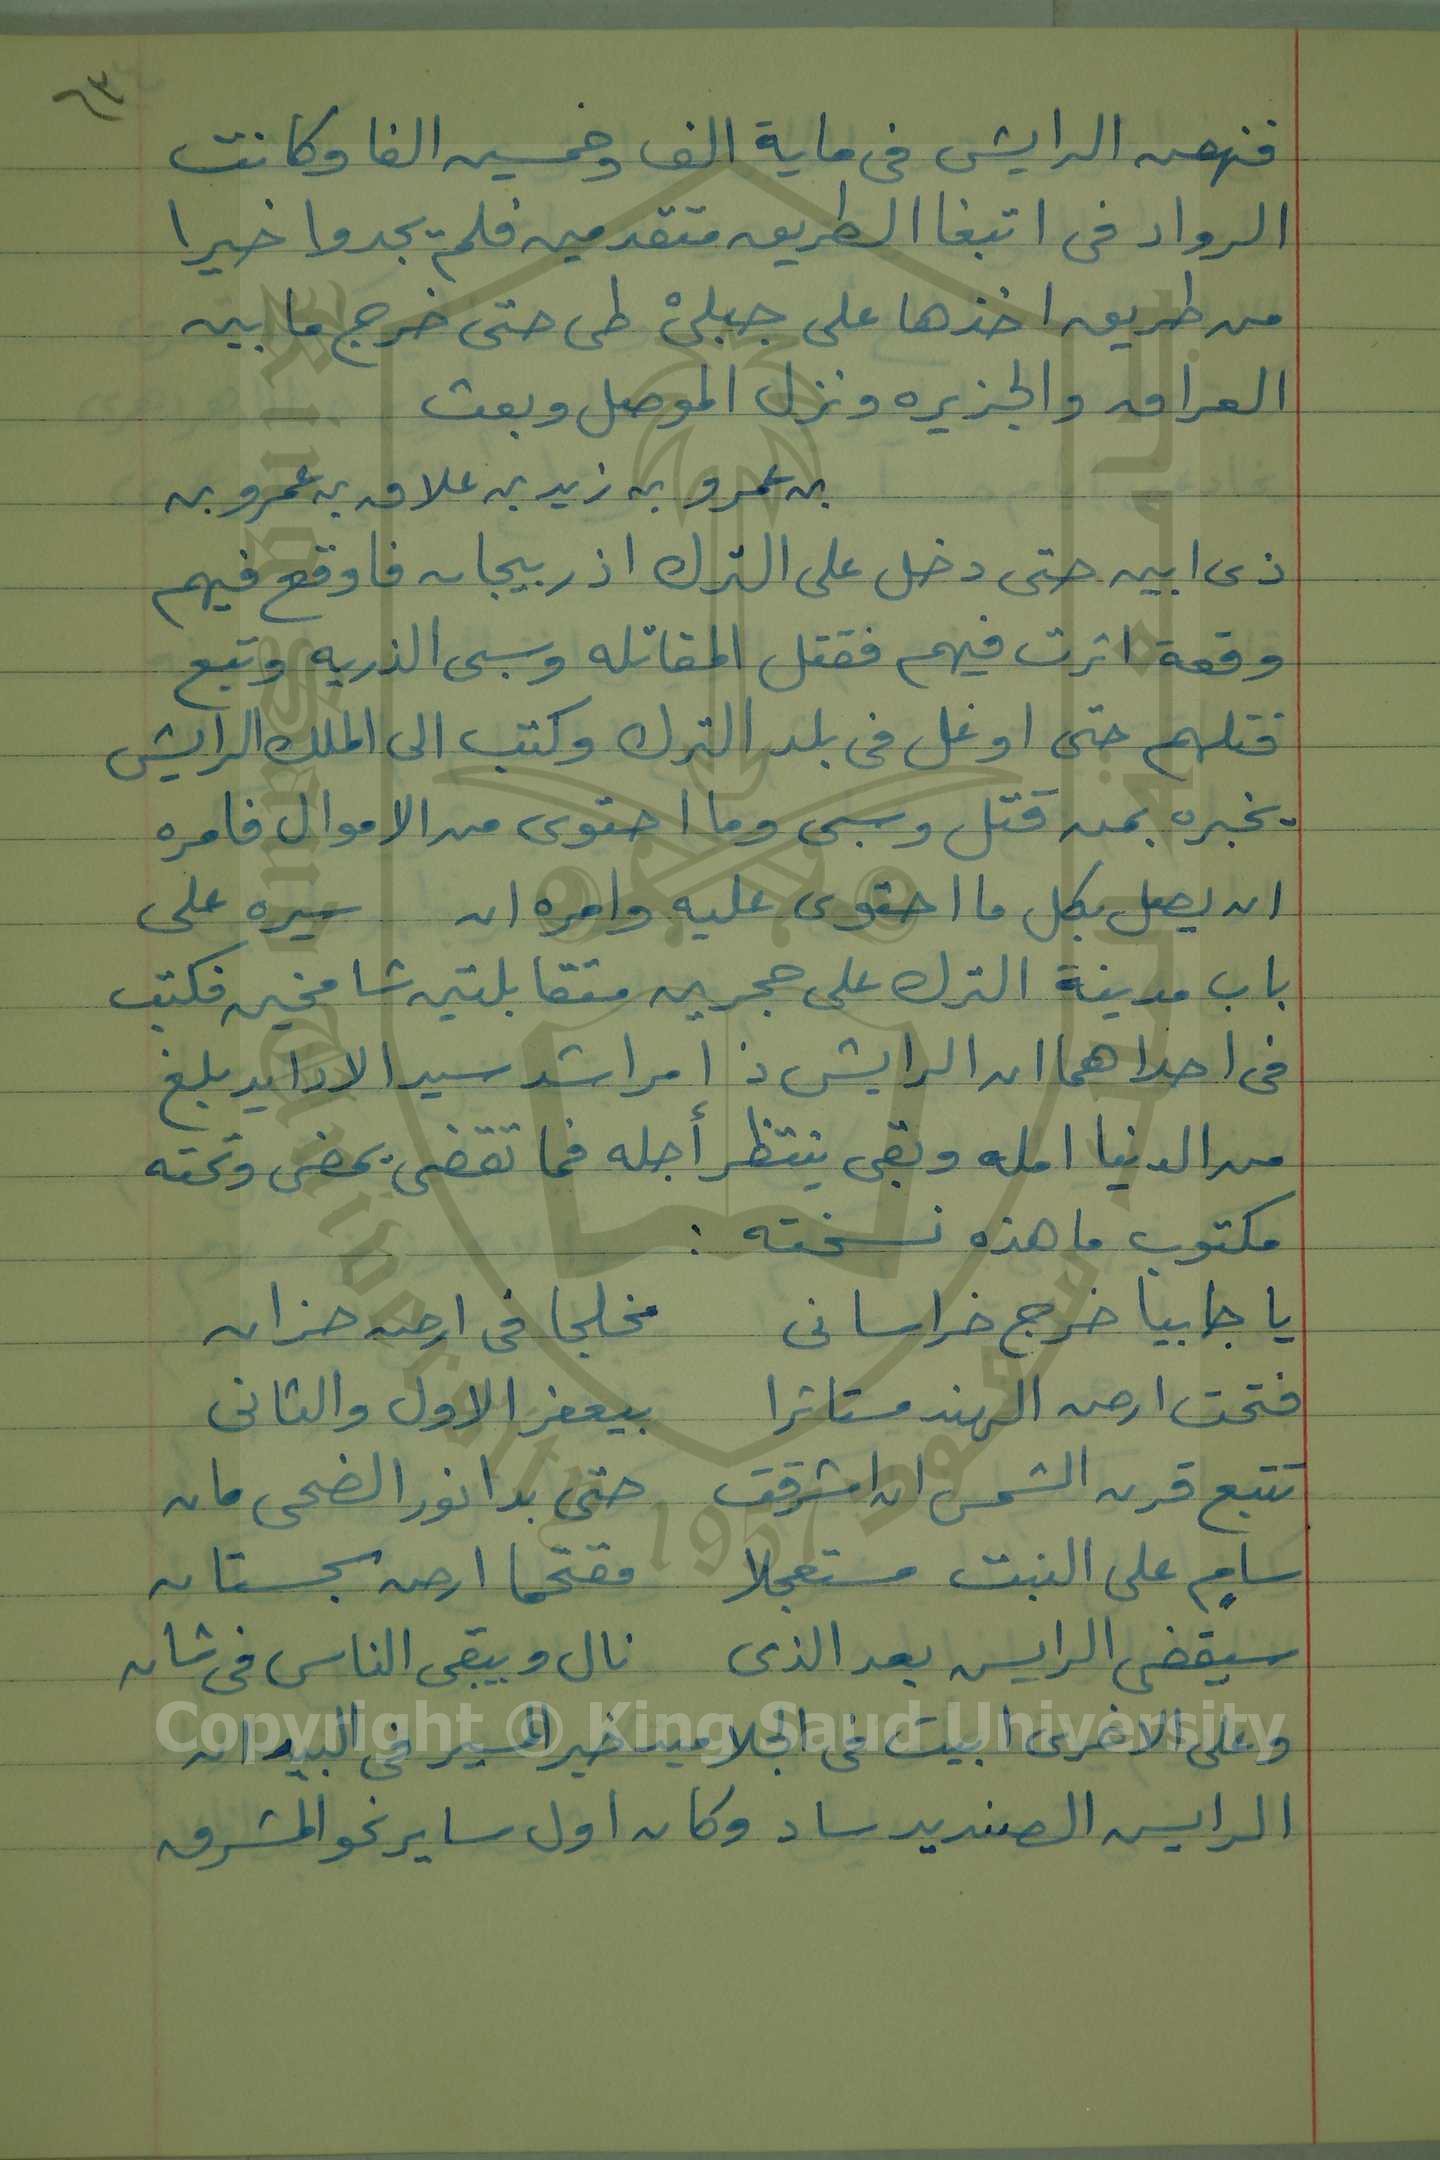 ٢٣
فنهض الرايش فى ماية الف وخمسين الفا وكانت
الرواد فى اتبغا الطريق متقدمين فلم يجدوا خيرا
من طريق اخذها على جبلىْ طى حتى خرج ما بين
العراق والجزيره ونزل الموصل وبعث
بن عمرو بن زيد بن علاق بن عمرو بن
ذى ابين حتى دخل على الترك اذربيجان فاوقع فيهم
وقعة اثرت فيهم فقتل المقاتله وسبى الذريه وتبع
قتلهم حتى اوغل فى بلد الترك وكتب الى الملك الرايش
يخبره بمن قتل وسبى وما احتوى من الاموال فامره
ان يصل بكل ما احتوى عليه وامره ان سيره على
باب مدينة الترك على حجرين متقابلتين شامخين فكتب
فى احداهما ان الرايش ذ امراشد سير الاردايد بلغ
من الدنيا امله وبقى ينتظر أجله فما تقضى يمضى وتحته
مكتوب ما هذه نسخته :
يا جابيا خرج خراسانى مخلجا فى ارض حزان
فتحت ارض الهند مستاثرا بيعفر الاول والثانى
تتبع قرن الشمس ان اشرقت حتى بدا نور الضحى مان
سامٍ على النبت مستعجلا مقتحما ارض سجستان
سيقضى الرايس بعد الذى نال ويبقى الناس فى شان
وعلى الاخرى ابيت فى الجلاميد خير المسير فى البيد ان
الرايس الصنديد ساد وكان اول ساير نحو المشرق
جامعة الملك سعود
King Saud University
1957
Copyright © King Saud University